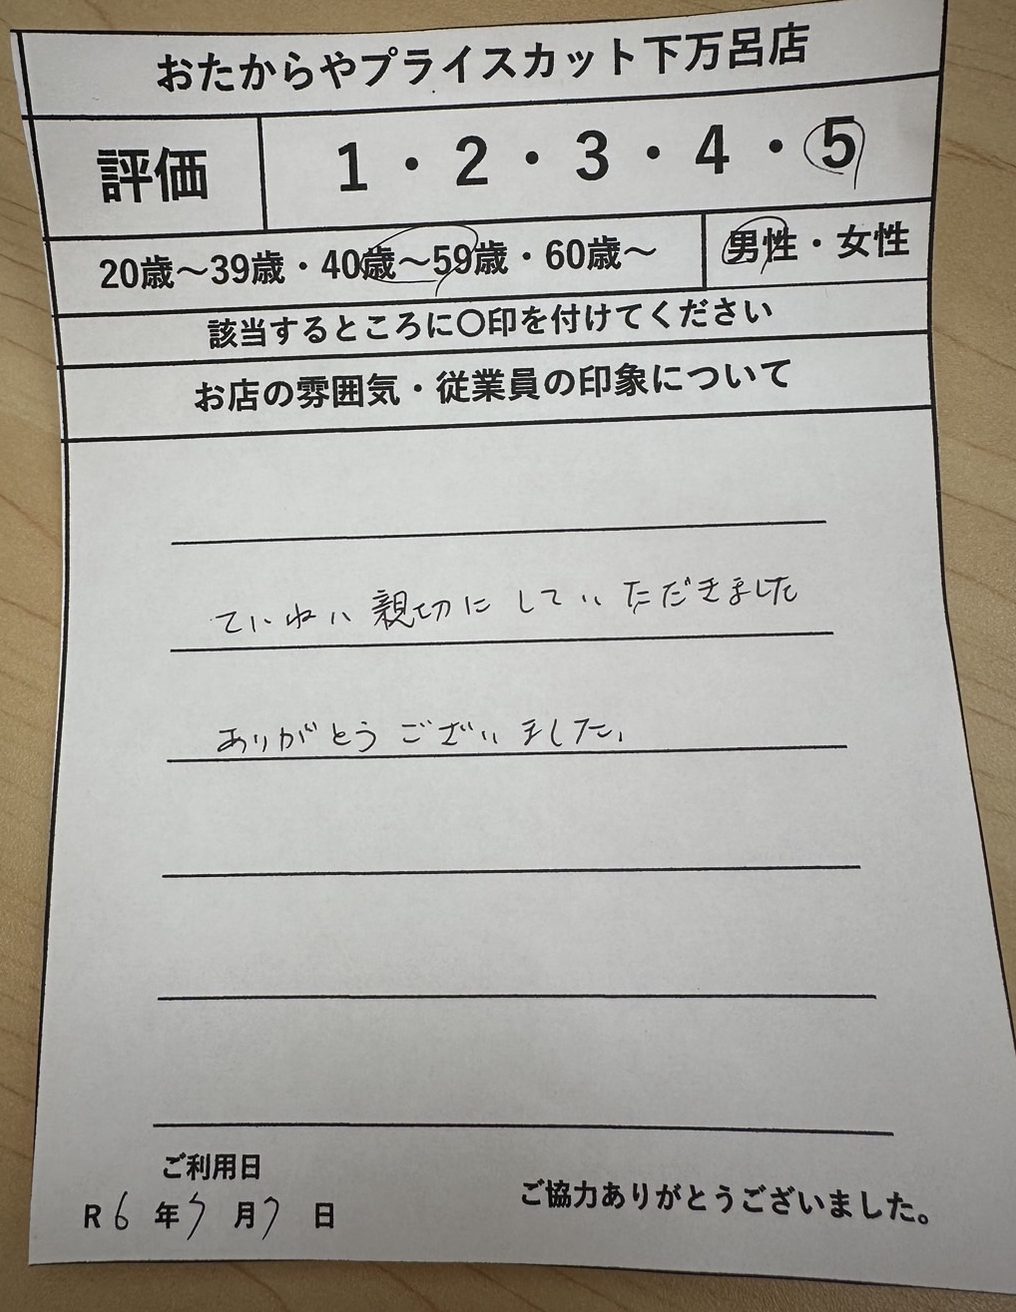 おたからやプライスカット下万呂店
評価 1・2・3・4・5
20歳～39歳・40歳～59歳・60歳～ 男性・女性
該当するところに〇印を付けてください
お店の雰囲気・従業員の印象について
ていねい親切にしていただきました
ありがとうございました。
ご利用日
R6年7月7日
ご協力ありがとうございました。